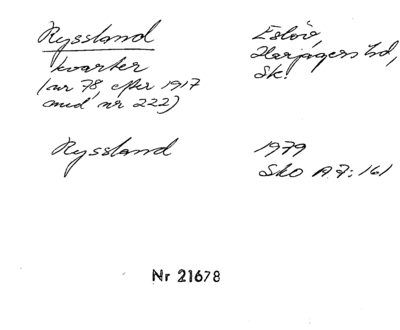 Ryssland
Eslöv,
Harjagers hd,
Sk.
kvarter
(nr 78, efter 1917
med nr 222)
Ryssland
1979
Sko A.7:161
Nr 21678